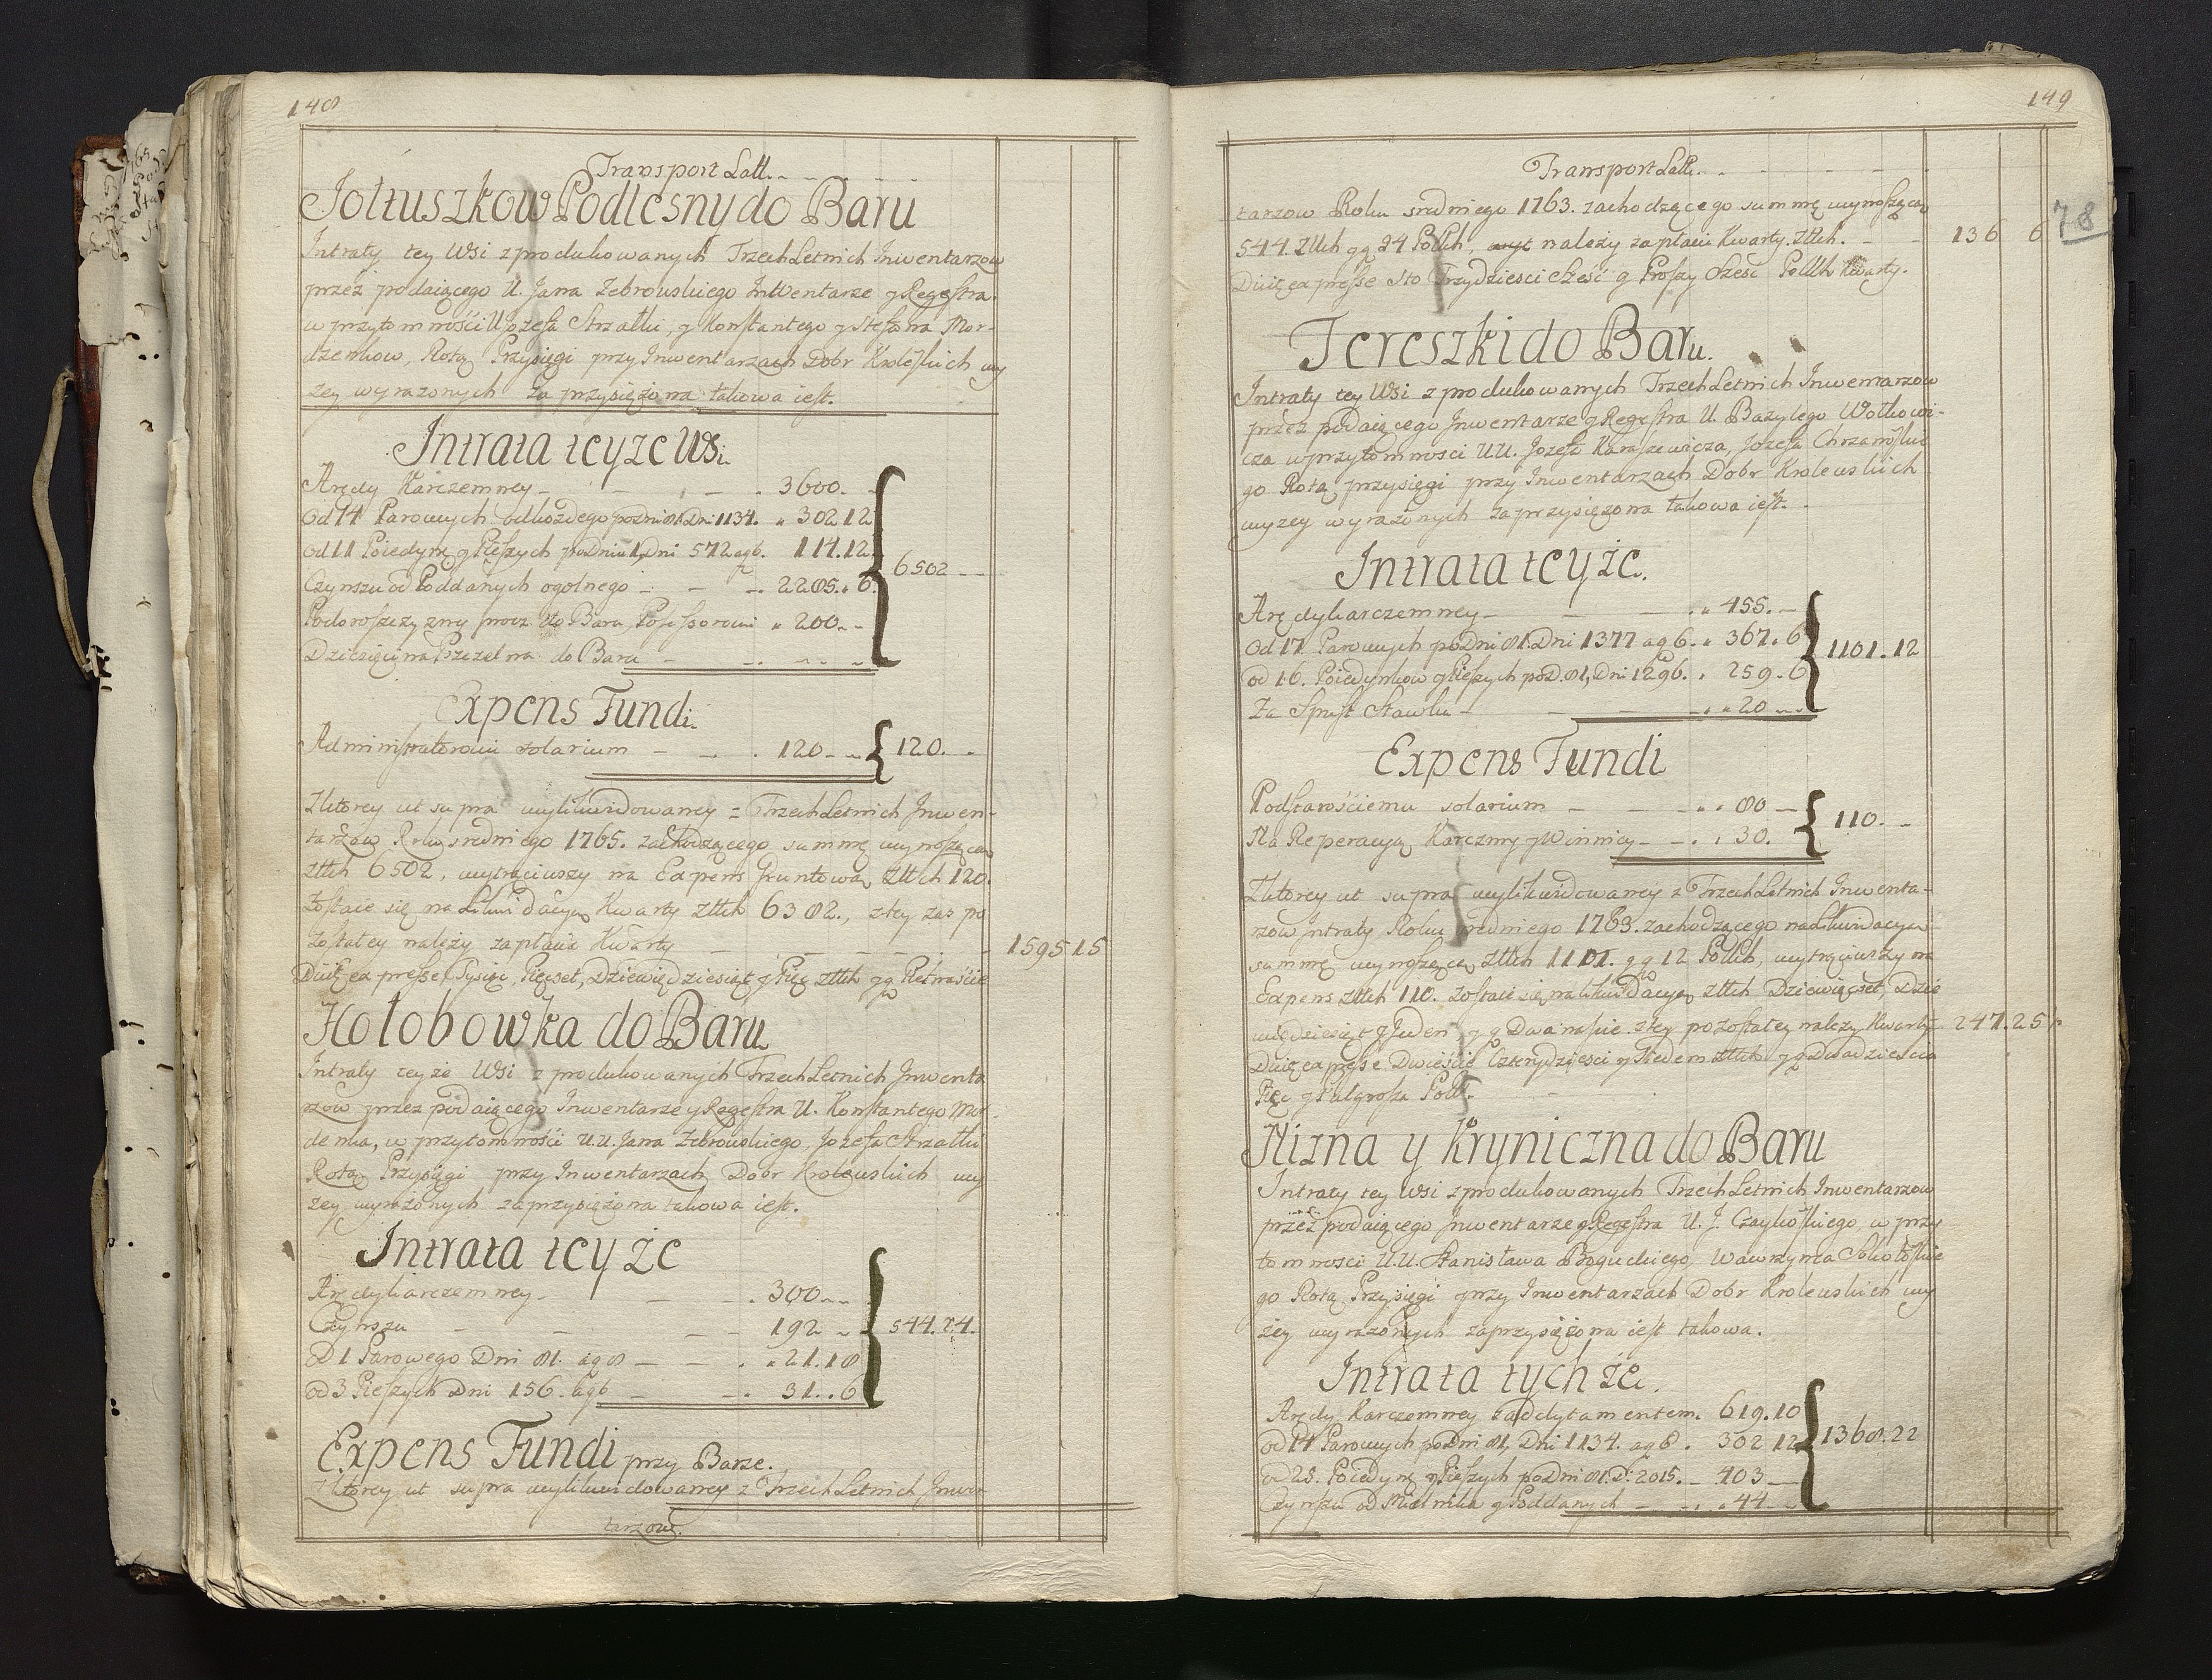 148
Transport Latt.
Jołtuszkow Podlesny do Baru
Intraty tey Wsi z produkowanych Trzech Letnich Inwentarzow
przez podaiącego U. Jana Zebrowskiego Inwentarze y Regestra.
w przytomności U Jozefa Strzałki, y Konstantego y Stefana Mor-
dzenkow, Rotą Przysięgi przy Inwentarzach Dobr Krolewskich wy
zey wyrazonych za przysięzona takowa iest.
Intrata teyze Wsi
Arędy Karczemney 3600.
Od 14 Parowych od kozdego po Dni 81. Dni 1134. 302 12
Od 11 Poiedynę y Pieszych po Dniu 1, Dni 572 ag 6. 114.12
Czynszu od Poddanych ogolnego 2285. 6.
6502
Podoroszczyzny procz do Baru, Possessorowi 200.
Dziesięcina Pszczelna do Baru
Expens Fundi
Administratorowi solarium 120. 120.
Z ktorey ut supra wylikwidowaney z Trzech Letnich Inwen-
tarzow Roku sredniego 1765. zachodzącego summę wynoszącą
złłch 6502, wytrąciwszy na Expens Gruntową złłch 120.
Zostaie się na Likwidacyą Kwarty złłch 6382., z tey zas po
zostałey nalezy zapłacic Kwarty 1595 15
Dico expresse Tysiąc, Pięcset, Dziewiędziesiąt y Pięc złłch gg Piętnaście
Hołobowka do Baru
Intraty teyze Wsi z produkowanych Trzech Letnich Inwenta
rzow przez podaiącego Inwentarze y Regestra U. Konstantego Mor-
denka, w przytomności U.U. Jana Zebrowskiego, Jozefa Strzałki
Rotą Przysięgi przy Inwentarzach Dobr Krolewskich wy
zey wyrazonych zaprzysięzona takowa iest.
Intrata teyże
Arędy karczemney 300
Czynszu 192
544.24.
od 1 Parowego Dni 81. ag 8 21.18
od 3 Pieszych Dni 156. ag 6 31. 6
Expens Fundi przy Barze.
Z ktorey ut supra wylikwidowaney z Trzech Letnich Inwen
tarzow.
149
Transport Latt.
tarzow Roku sredniego 1763. zachodzącego summę wynoszącą
78
544 złłch gg 24 Pollch, nalezy zapłacic Kwarty złłch. 136 6
Dico expresse Sto Trzydziesci Szesć y Groszy Szesc Pollch Kwarty.
Tereszki do Baru.
Intraty tey Wsi z produkowanych Trzech Letnich Inwentarzow
przez podaiącego Inwentarze y Regestra U. Bazylego Wołkowi-
cza w przytomnosci U.U. Jozefa Karaszewicza, Jozefa Chrzanoskie
go Rotą przysięgi przy Inwentarzach Dobr Krolewskich
wyzey wyrazonych zaprzysięzona takowa iest.
Intrata teyże.
Arędy karczemney 455.
Od 17 Parowych po Dni 81. Dni 1377 ag 6. 367. 6
1101.12
od 16. Poiedynkow y Pieszych po D. 81, Dni 1296. 259. 6
Za Spust Stawku 20
Expens Fundi
Podstarościemu solarium 80
110.
Na Reperacyą Karczmy y Winnicy 30.
Z ktorey ut supra wylikwidowaney z Trzech Letnich Inwenta-
rzow Intraty Roku sredniego 1763. zachodzącego na Likwidacyą
summę wynoszącą złłch 1101. gg 12 Pollch, wytrąciwszy na
Expens złłch 110. zostaie się na likwidacyą złłch Dziewięcset, Dzie
więdziesiąt y Jeden gg Dwanascie z tey pozostałey nalezy Kwarty 247.25
Dico expresse Dwieście Czterydziesci y Siedem złłch gg Dwadziescia
Pięc y Pułgrosza Poll.
Nizna y Kryniczna do Baru
Intraty tey Wsi z produkowanych Trzech Letnich Inwentarzow
przez podaiącego Inwentarze y Regestra U. J. Czaykoskiego, w przy
tomnosci U.U. Stanisława Boguckiego, Wawrzynca Sokołoskie
go Rotą Przysięgi przy Inwentarzach Dobr Krolewskich wy
żey wyrazonych zaprzysięzona iest takowa.
Intrata tych że.
Arędy Karczemney z addytamentem. 619.10
od 14 Parowych po Dni 81, Dni 1134. ag 8. 302 12
1368.22
od 25. Poiedynę y Pieszych po Dni 81. D. 2015. 403
Czynszu od Mielnika y Poddanych 44